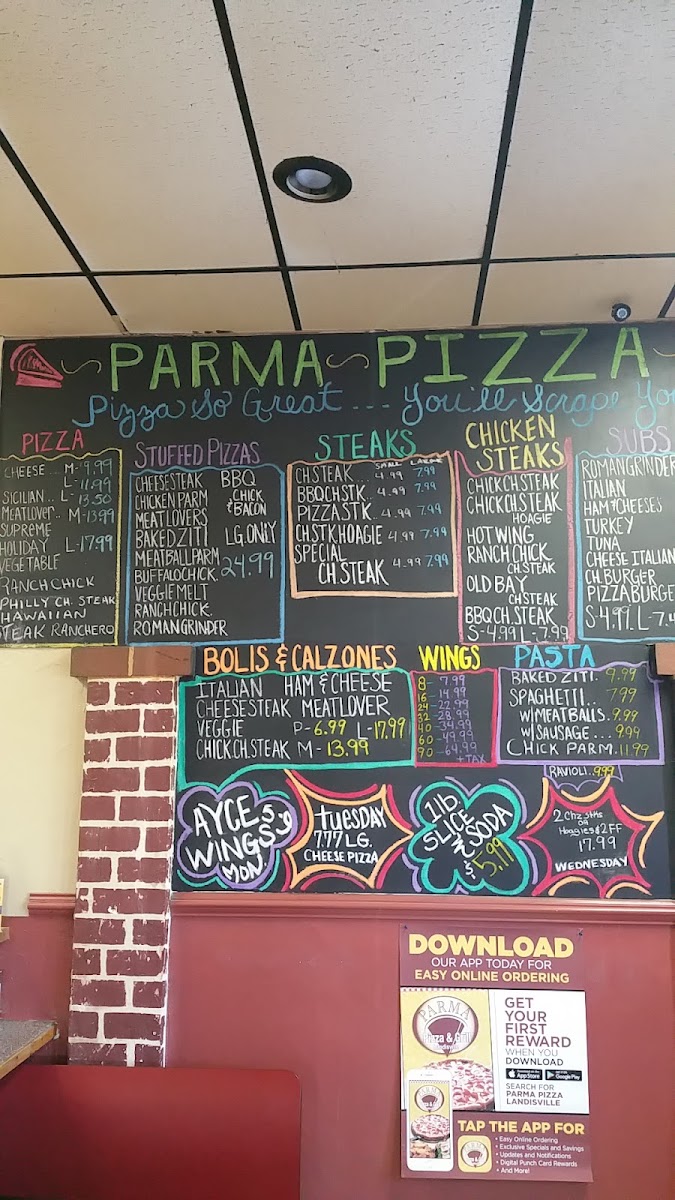 PARMA PIZZA
Pizza So Great... You'll Scrape Yo
PIZZA
CHEESE... M-9.99
L-11.99
SICILIAN.. L-13.50
MEATLOVER.. M-13.99
SUPREME
HOLIDAY L-17.99
VEGETABLE
RANCH CHICK
PHILLY CH. STEAK
HAWAIIAN
STEAK RANCHERO
STUFFED PIZZAS
CHEESESTEAK BBQ
CHICKEN PARM CHICK
MEATLOVERS & BACON
BAKED ZITI LG. ONLY
MEATBALL PARM 24.99
BUFFALO CHICK.
VEGGIE MELT
RANCH CHICK.
ROMAN GRINDER
STEAKS
SMALL LARGE
CH. STEAK... 4.99 7.99
BBQ CH. STK.. 4.99 7.99
PIZZA STK.. 4.99 7.99
CH. STK. HOAGIE 4.99 7.99
SPECIAL 4.99 7.99
CH. STEAK
CHICKEN
STEAKS
CHICK CH. STEAK
CHICK CH. STEAK
HOAGIE
HOT WING
RANCH CHICK
CH. STEAK
OLD BAY
CH. STEAK
BBQ CH. STEAK
S-4.99 L-7.99
SUBS
ROMAN GRINDER
ITALIAN
HAM & CHEESES
TURKEY
TUNA
CHEESE ITALIAN
CH. BURGER
PIZZA BURGE
S-4.99. L-7.
BOLIS & CALZONES
ITALIAN HAM & CHEESE
CHEESESTEAK MEATLOVER
VEGGIE P-6.99 L-17.99
CHICK. CH. STEAK M-13.99
WINGS
8 - 7.99
16 - 14.99
24 - 22.99
32 - 28.99
40 - 34.99
60 - 49.99
90 - 64.99
+ TAX
PASTA
BAKED ZITI. 9.99
SPAGHETTI.. 7.99
W/MEATBALLS. 9.99
W/SAUSAGE... 9.99
CHICK PARM. 11.99
RAVIOLI. 9.99
AYCE
WINGS
MON
TUESDAY
7.77 LG.
CHEESE PIZZA
1 lb.
SLICE
W/ SODA
$5.99
2 Chz Stks
OR
Hoagies & 2FF
17.99
WEDNESDAY
DOWNLOAD
OUR APP TODAY FOR
EASY ONLINE ORDERING
PARMA
Pizza & Grill
GET
YOUR
FIRST
REWARD
WHEN YOU
DOWNLOAD
App Store
Google Play
SEARCH FOR
PARMA PIZZA
LANDISVILLE
TAP THE APP FOR
• Easy Online Ordering
• Exclusive Specials and Savings
• Updates and Notifications
• Digital Punch Card Rewards
• And More!